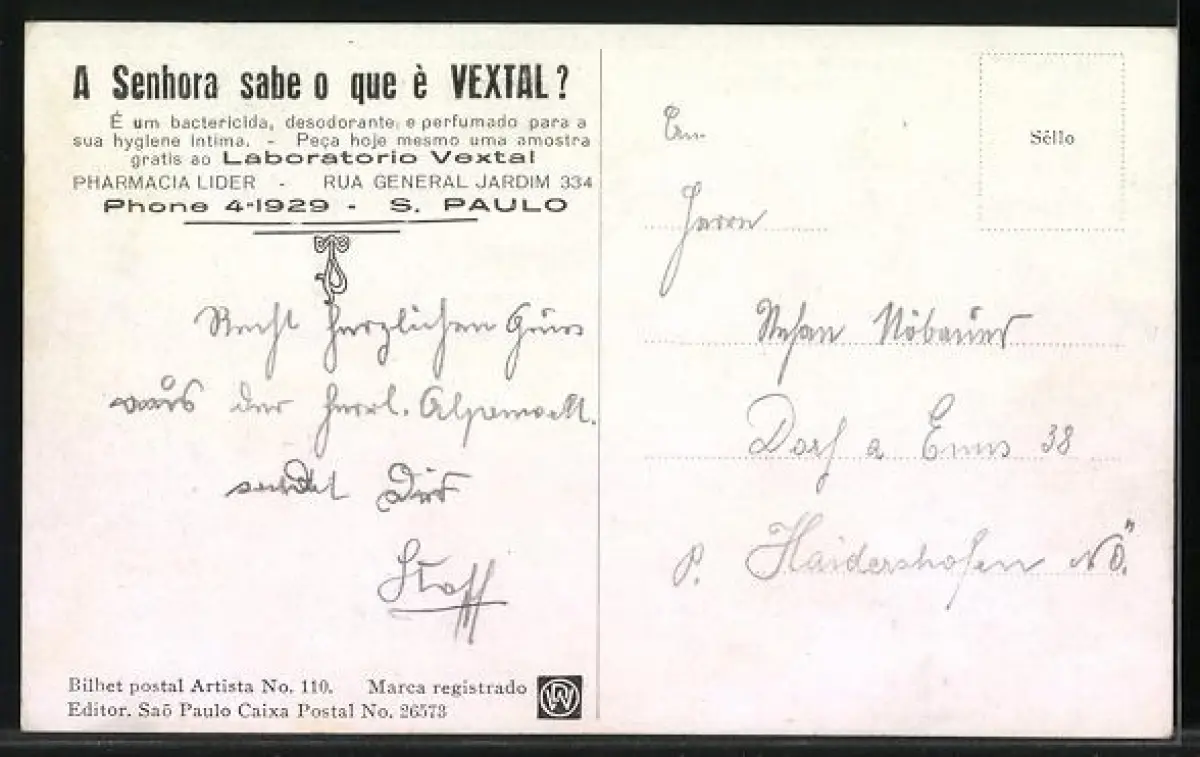 A Senhora sabe o que è VEXTAL?
É um bactericida, desodorante, e perfumado para a
sua hygiene intima. - Peça hoje mesmo uma amostra
gratis ao Laboratorio Vextal
PHARMACIA LIDER - RUA GENERAL JARDIM 334
Phone 4-1929 - S. PAULO
Recht herzlichen
aus der herrl. Alpenwelt.
sendet Dir
Bilhet postal Artista No. 110. Marca registrado
Editor. Saõ Paulo Caixa Postal No. 26573
Séllo
Herrn
Dorf a Enns 38
P. Haidershofen NÖ.